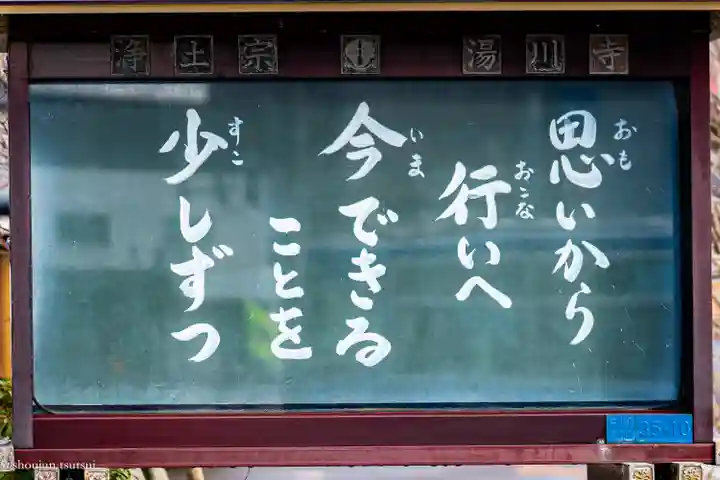 浄土宗 湯川寺
思いから
おも
行いへ
おこな
今できる
いま
ことを
少しずつ
すこ
35-10
shoujun.tsutsui